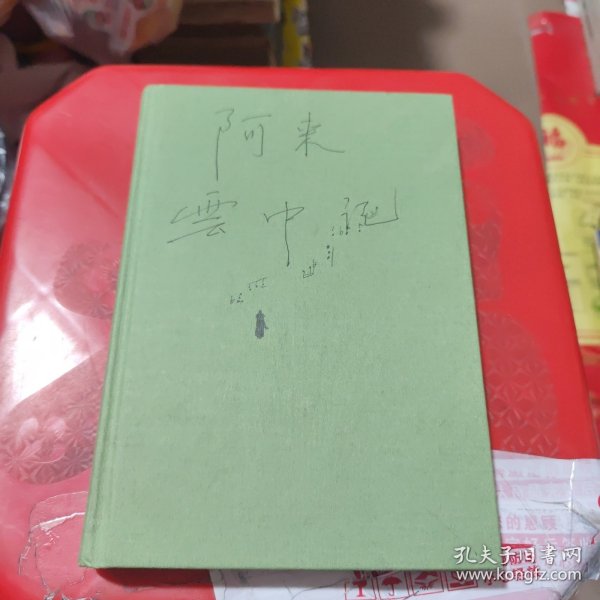 阿来
雲中记
孔夫子旧书网
www.kongfz.com